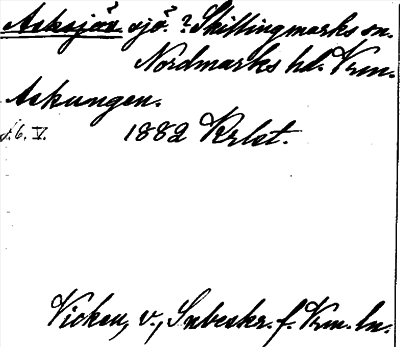 Asksjön sjö. ? Skillingmarks sn.
Nordmarks hd. Vrm.
Askungen.
J. 6. V. 1882 Krlst.
Vicken, v., Insbeskr. f. Vrm. ln.